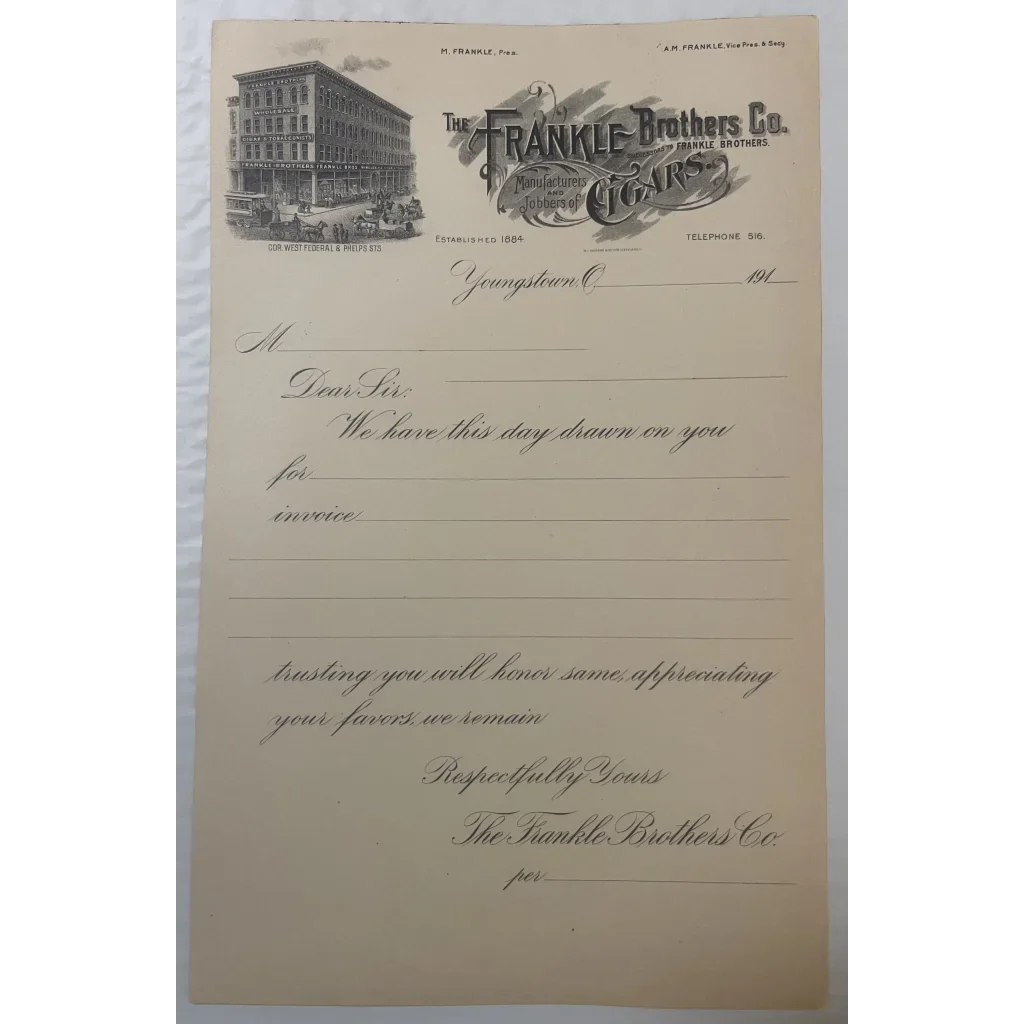 M. FRANKLE, Pres.
A.M. FRANKLE, Vice Pres. & Secy.
FRANKLE BROTHERS
WHOLESALE
CIGAR & TOBACCONISTS
FRANKLE BROTHERS FRANKLE BROS.
THE FRANKLE Brothers Co.
SUCCESSORS TO FRANKLE BROTHERS.
Manufacturers
AND
Jobbers of
CIGARS.
ESTABLISHED 1884.
TELEPHONE 516.
COR. WEST FEDERAL & PHELPS STS.
Youngstown, O. 191
M
Dear Sir:
We have this day drawn on you
for
invoice
trusting you will honor same, appreciating
your favors, we remain
Respectfully Yours
The Frankle Brothers Co.
per